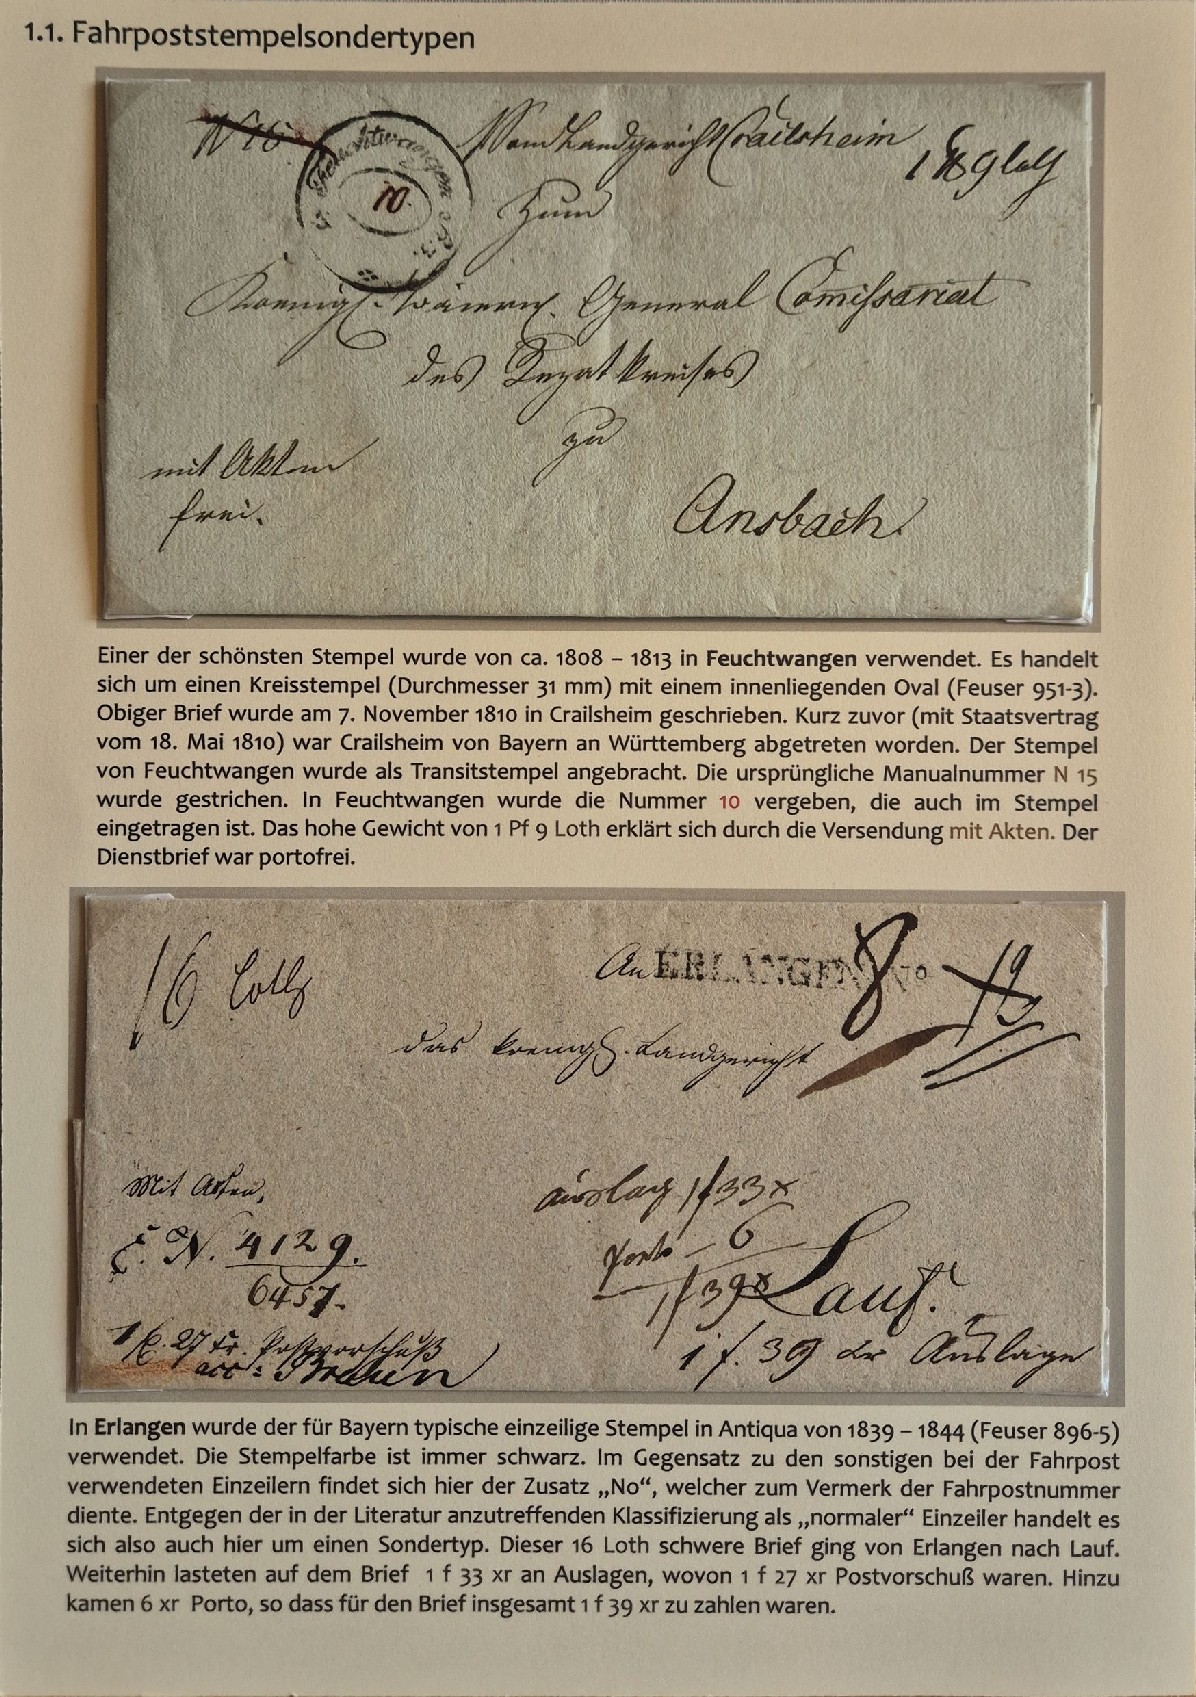 1.1. Fahrpoststempelsondertypen
N 15
Feuchtwangen
10.
Vom Landgericht Crailsheim
1 ℔ 9 Loth
Zum
Koenigl. baiern. General Comißariat
des Rezatkreises
zu
mit Akten
frei.
Ansbach.
Einer der schönsten Stempel wurde von ca. 1808 – 1813 in Feuchtwangen verwendet. Es handelt
sich um einen Kreisstempel (Durchmesser 31 mm) mit einem innenliegenden Oval (Feuser 951-3).
Obiger Brief wurde am 7. November 1810 in Crailsheim geschrieben. Kurz zuvor (mit Staatsvertrag
vom 18. Mai 1810) war Crailsheim von Bayern an Württemberg abgetreten worden. Der Stempel
von Feuchtwangen wurde als Transitstempel angebracht. Die ursprüngliche Manualnummer N 15
wurde gestrichen. In Feuchtwangen wurde die Nummer 10 vergeben, die auch im Stempel
eingetragen ist. Das hohe Gewicht von 1 Pf 9 Loth erklärt sich durch die Versendung mit Akten. Der
Dienstbrief war portofrei.
16 Loth
An ERLANGEN No
8
das koenigl. Landgericht
Mit Akten,
E. N. 4129.
6457.
auslag 1f 33x
Porto – 6
1f 39x
Lauf.
1 f. 27 kr. Postvorschuß
1 f. 39 kr Auslage
In Erlangen wurde der für Bayern typische einzeilige Stempel in Antiqua von 1839 – 1844 (Feuser 896-5)
verwendet. Die Stempelfarbe ist immer schwarz. Im Gegensatz zu den sonstigen bei der Fahrpost
verwendeten Einzeilern findet sich hier der Zusatz „No“, welcher zum Vermerk der Fahrpostnummer
diente. Entgegen der in der Literatur anzutreffenden Klassifizierung als „normaler“ Einzeiler handelt es
sich also auch hier um einen Sondertyp. Dieser 16 Loth schwere Brief ging von Erlangen nach Lauf.
Weiterhin lasteten auf dem Brief 1 f 33 xr an Auslagen, wovon 1 f 27 xr Postvorschuß waren. Hinzu
kamen 6 xr Porto, so dass für den Brief insgesamt 1 f 39 xr zu zahlen waren.